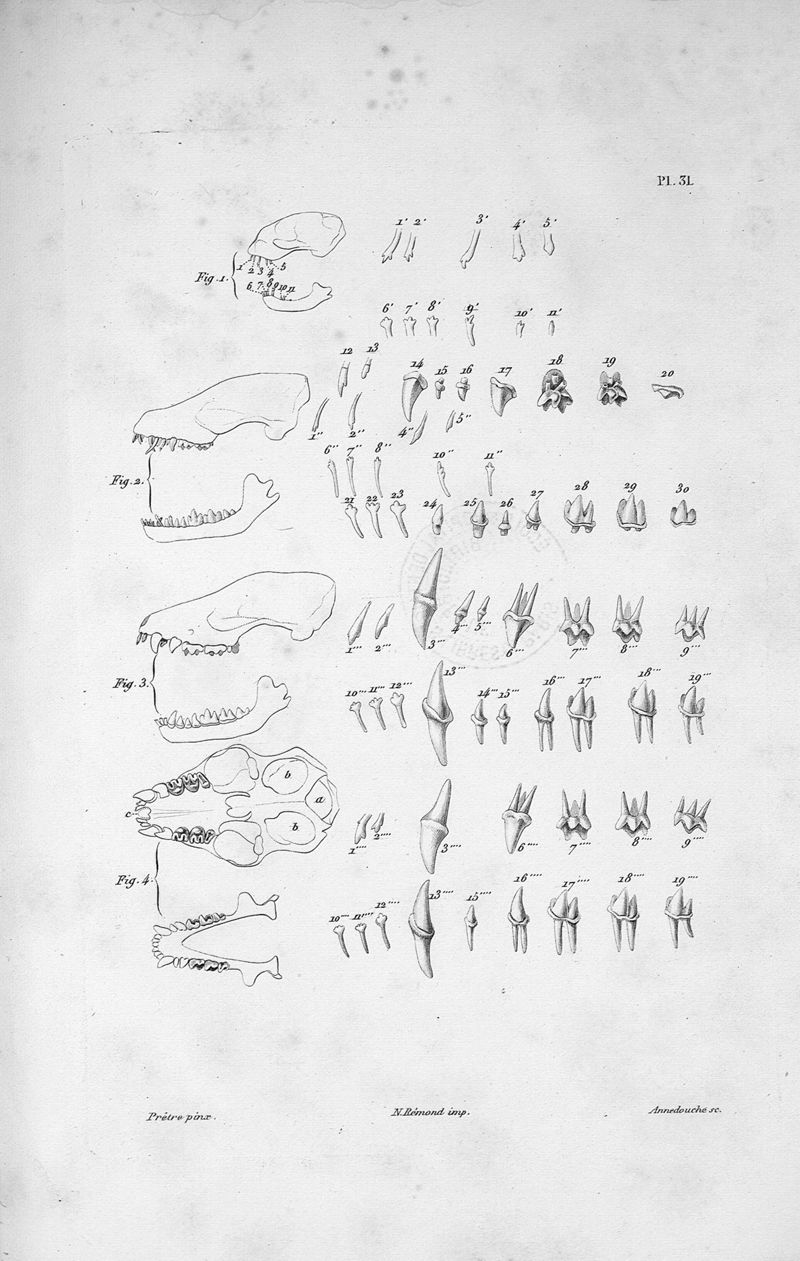 Pl. 31.
1' 2' 3' 4' 5'
1 2 3 4 5
Fig. 1.
6 7 8 9 10 11
6' 7' 8' 9' 10' 11'
12 13 14 15 16 17 18 19 20
1" 2" 4" 5"
6" 7" 8" 10" 11"
Fig. 2.
21 22 23 24 25 26 27 28 29 30
1''' 2''' 3''' 4''' 5''' 6''' 7''' 8''' 9'''
Fig. 3.
10''' 11''' 12''' 13''' 14''' 15''' 16''' 17''' 18''' 19'''
b
a
c
b
1'''' 2'''' 3'''' 6'''' 7'''' 8'''' 9''''
Fig. 4.
10'''' 11'''' 12'''' 13'''' 15'''' 16'''' 17'''' 18'''' 19''''
Prêtre pinx.
N. Rémond imp.
Annedouche sc.